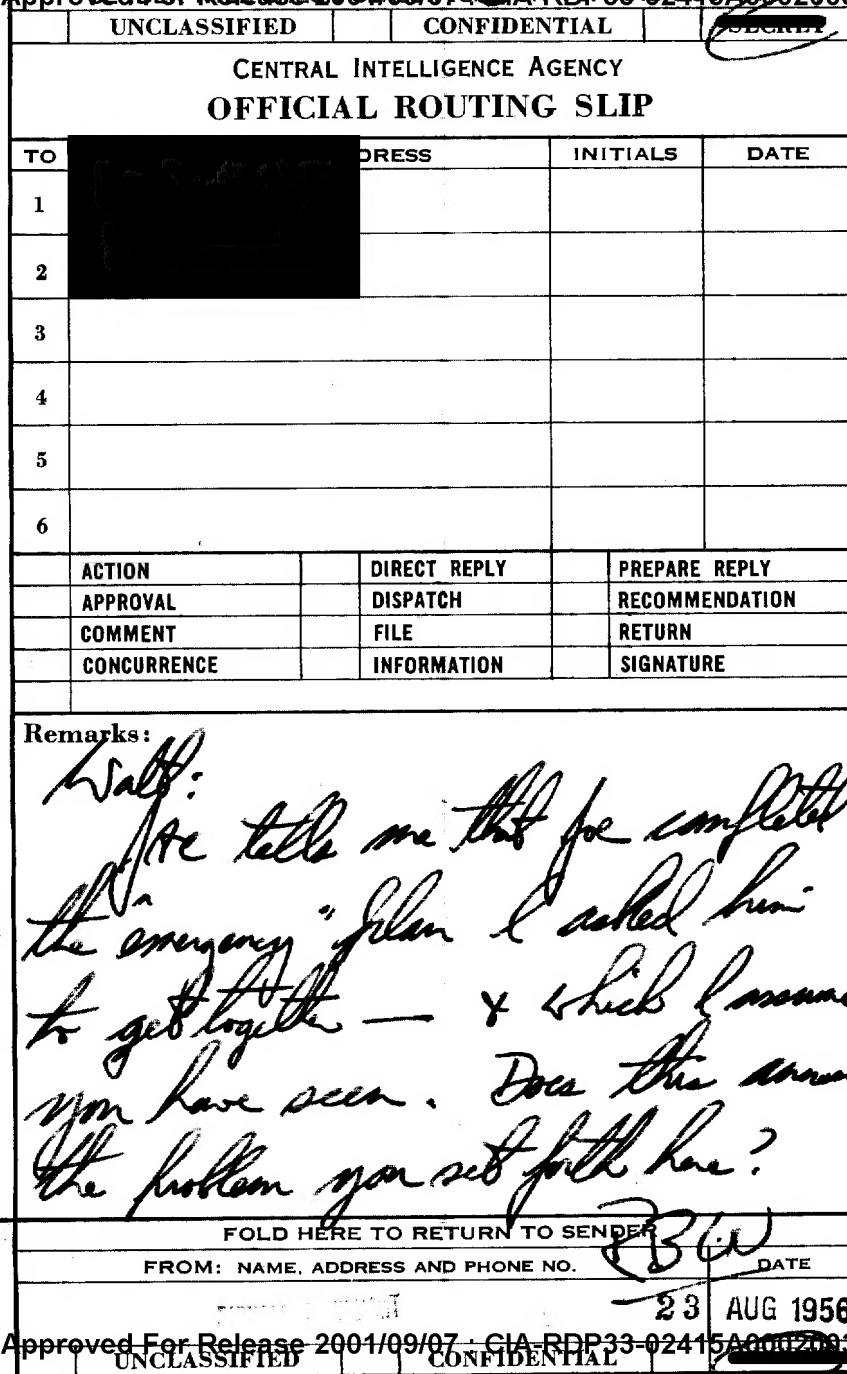 UNCLASSIFIED CONFIDENTIAL SECRET
CENTRAL INTELLIGENCE AGENCY
OFFICIAL ROUTING SLIP
TO DRESS INITIALS DATE
1
2
3
4
5
6
ACTION DIRECT REPLY PREPARE REPLY
APPROVAL DISPATCH RECOMMENDATION
COMMENT FILE RETURN
CONCURRENCE INFORMATION SIGNATURE
Remarks:
Walt:
tells me that Joe completed
the "emergency" plan I asked him
to get together — & which I assume
you have seen. Does this answer
the problem you set forth here?
FOLD HERE TO RETURN TO SENDER
FROM: NAME, ADDRESS AND PHONE NO. DATE
23 AUG 1956
Approved For Release 2001/09/07 : CIA-RDP33-02415A000200
UNCLASSIFIED CONFIDENTIAL